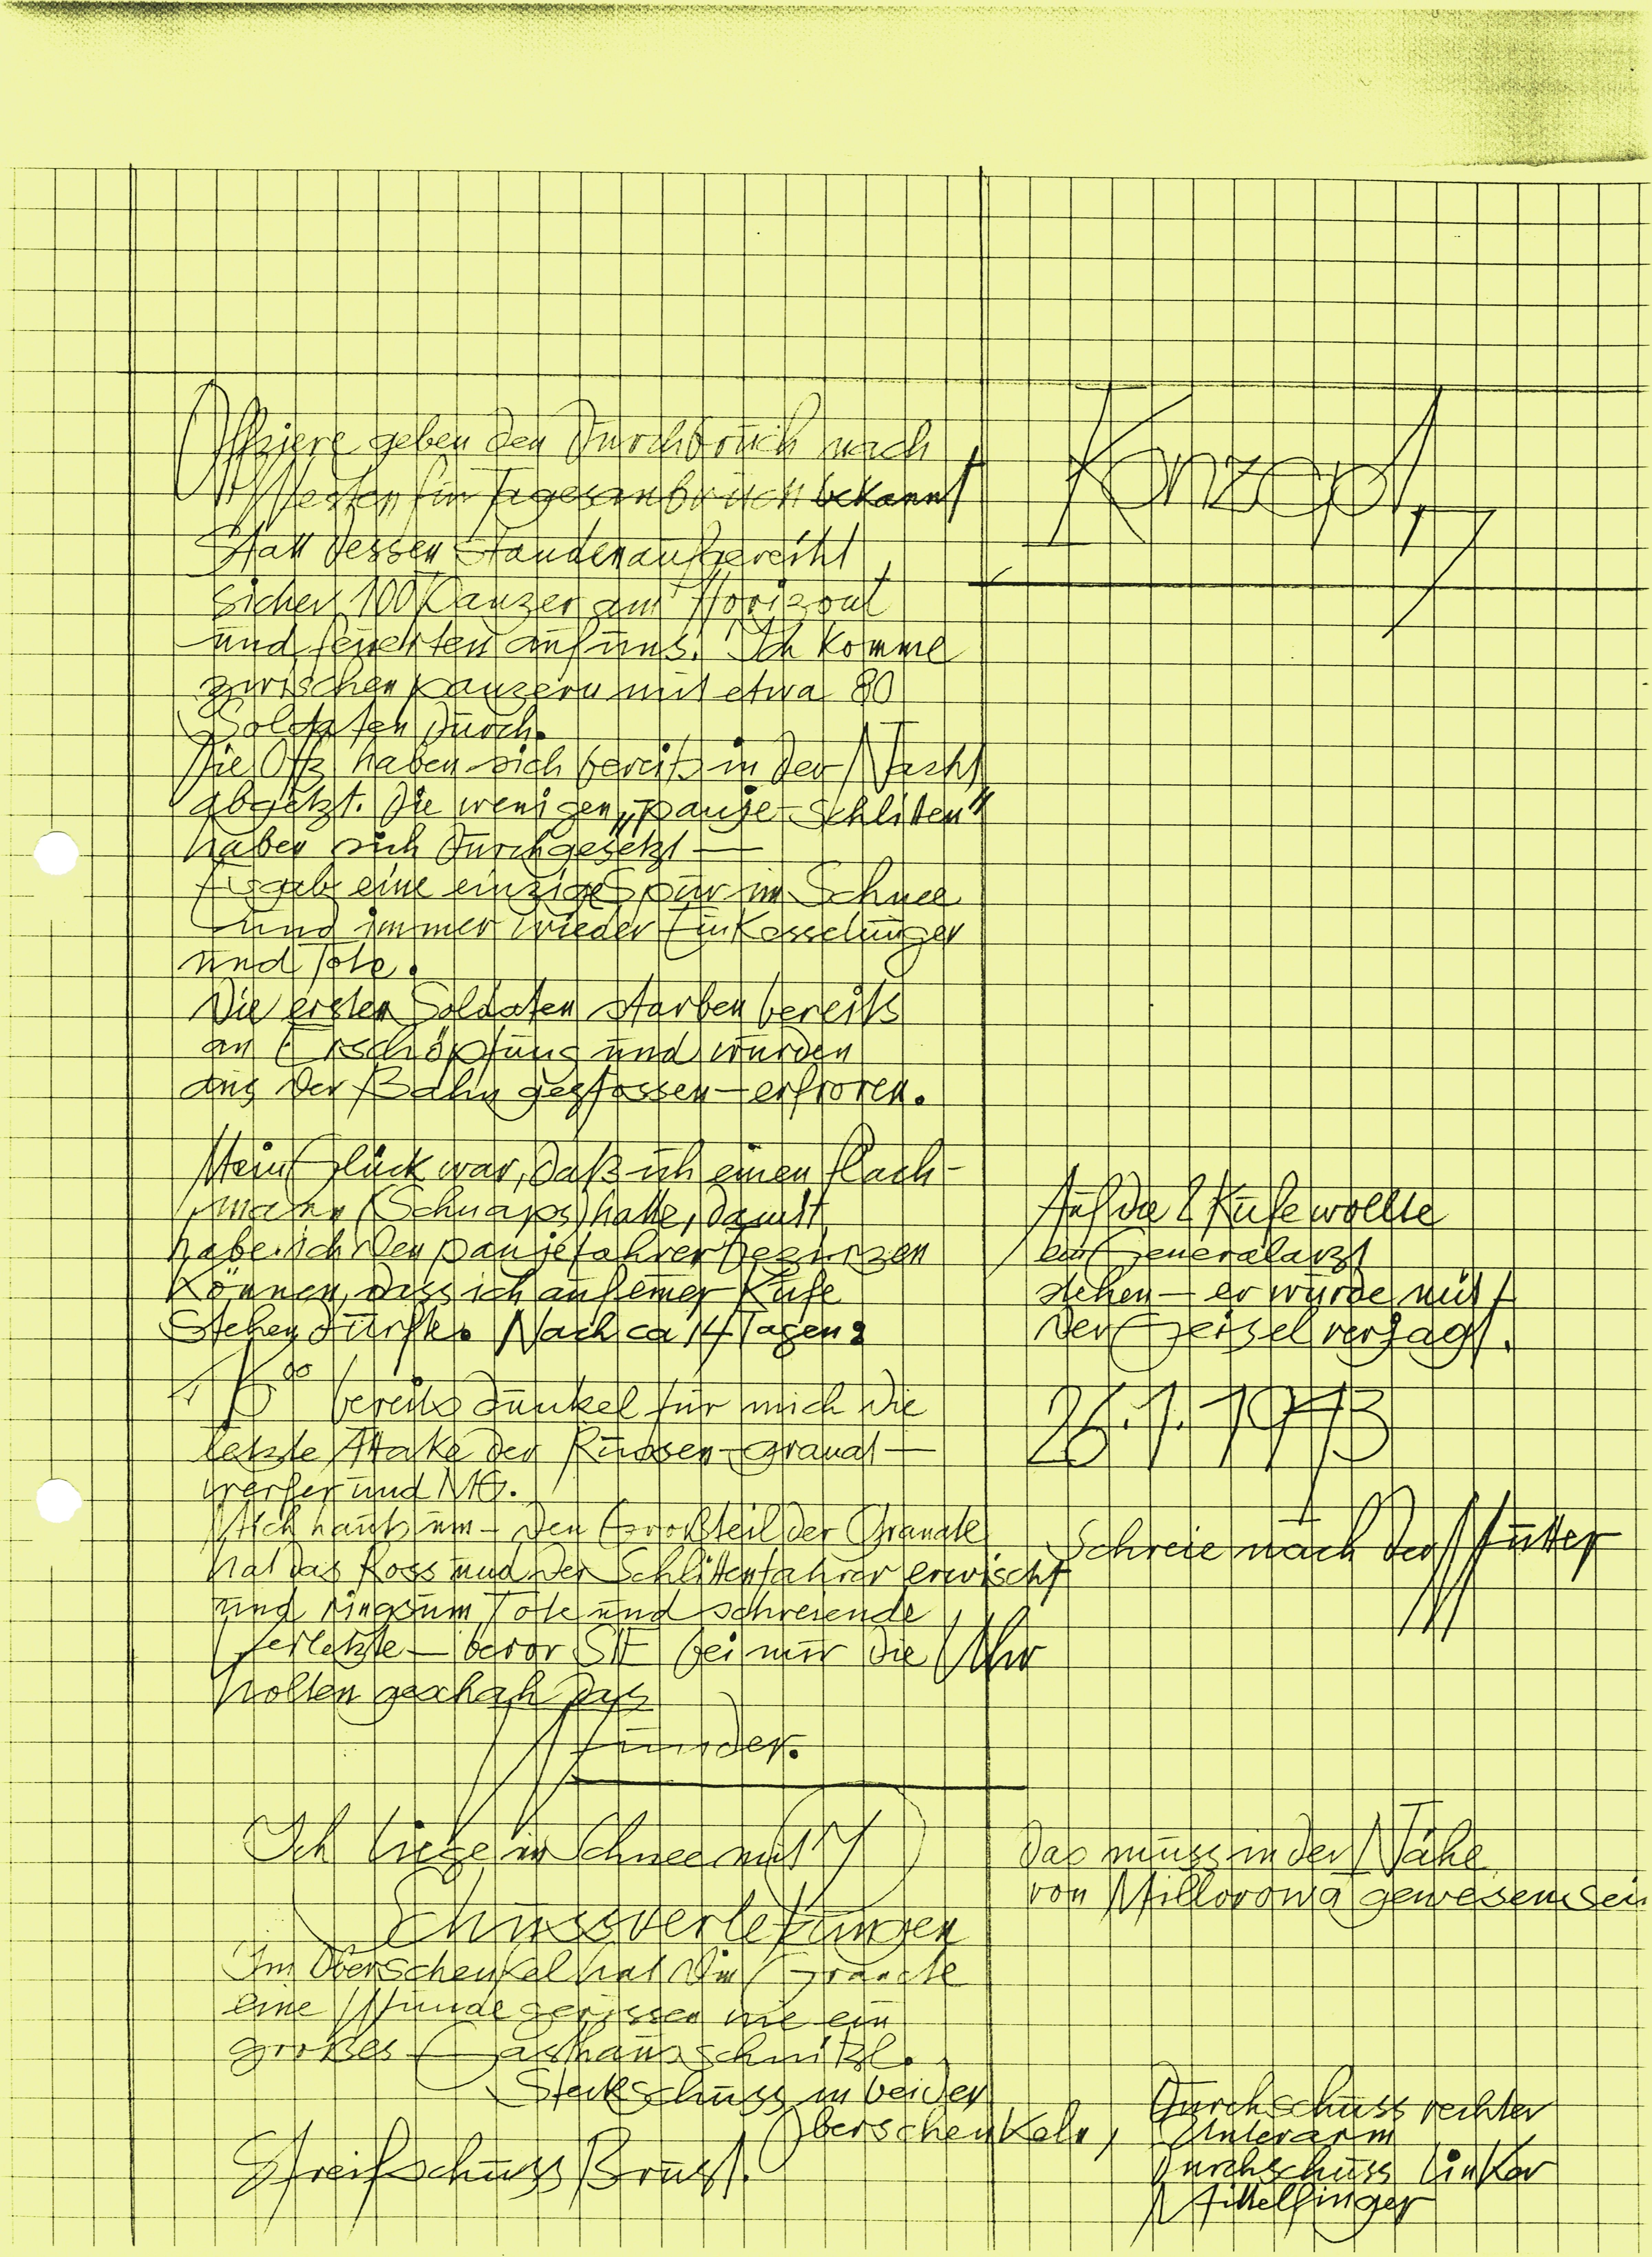 Konzept
Offiziere geben den Durchbruch nach
Westen für Tagesanbruch bekannt
Statt dessen standen aufgereiht
sicher 100 Panzer am Horizont
und feuerten auf uns. Ich komme
zwischen panzern mit etwa 80
Soldaten durch.
Die Offz haben sich bereits in der Nacht
abgesetzt. Die wenigen „panje-Schlitten"
haben sich durchgesetzt —
Es gab eine einzige Spur im Schnee
und immer wieder Einkesselungen
und Tote.
Die ersten Soldaten starben bereits
an Erschöpfung und wurden
aus der Bahn gestossen — erfroren.
Mein Glück war, daß ich einen flach-
mann (Schnaps) hatte, damit
habe ich den panjefahrer bezirzen
können, dass ich auf einer Kufe
Stehen durfte. Nach ca 14 Tagen:
Auf die 2 Kufe wollte
ein Generalarzt
stehen — er wurde mit
der Geisel verjagt.
16⁰⁰ bereits dunkel für mich die
letzte Attake der Russen-granat-
werfer und MG.
26.1.1943
Mich hauts um — Den Großteil der Granate
hat das Ross und der Schlittenfahrer erwischt
und ringsum Tote und schreiende
Verletzte — bevor SIE bei mir die Uhr
holten geschah das
Wunder.
Schreie nach der Mutter
Ich liege im Schnee mit 7
Schussverletzungen
Das muss in der Nähe
von Millorowa gewesen sein
Im Oberschenkel hat die Granate
eine Wunde gerissen wie ein
großes Gasthausschnitzl.
Steckschuss in beiden
Oberschenkeln,
Streifschuss Brust.
Durchschuss rechter
Unterarm
Durchschuss linker
Mittelfinger